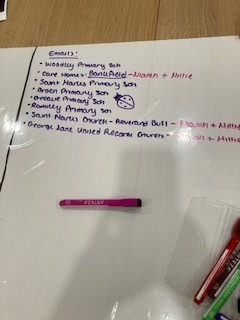 Emails:
• Woodley Primary Sch
• Care Homes: Bankfield - Niamh + Millie
• Saint Marks Primary Sch
• Arden Primary Sch
• Greave Primary Sch
• Romiley Primary Sch
• Saint Marks Church - Reverand Bull - Niamh + Millie
• George Lane United Reform Church - Niamh + Millie
ARTEZA